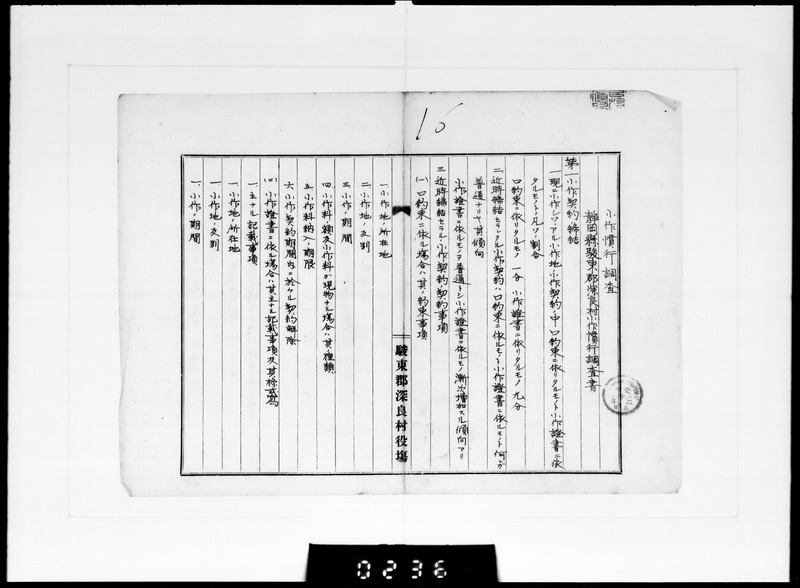 15
小作慣行調査
静岡縣駿東郡深良村小作慣行調査書
第一 小作契約ノ締結
一 現ニ小作シツヽアル小作地小作契約ノ中口約束ニ依リタルモノト小作證書ニ依
タルモノトノ凡ソノ割合
口約束ニ依リタルモノ 一分 小作證書ニ依リタルモノ 九分
二 近時締結セラルヽ小作契約ハ口約束ニ依ルモノト小作證書ニ依ルモノト何レガ
普通ナリヤ其傾向
小作證書ニ依ルモノヲ普通トシ小作證書ニ依ルモノ漸次増加スル傾向アリ
三 近時締結セラルヽ小作契約ノ契約事項
(一) 口約束ニ依ル場合ハ其ノ約束事項
一、小作地ノ所在地
二、小作地ノ反別
三、小作ノ期間
四、小作料ノ額及小作料ガ現物ナル場合ハ其ノ種類
五、小作料納入ノ期限
六、小作契約期間内ニ於ケル契約解除
(二) 小作證書ニ依ル場合ハ其主ナル記載事項及其ノ様式ノ寫
一、主ナル記載事項
一、小作地ノ所在地
一、小作地ノ反別
一、小作ノ期間
駿東郡深良村役場
0236